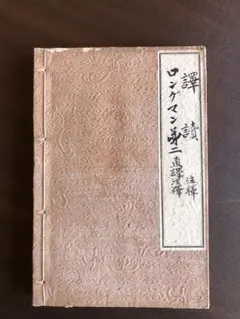 譯讀
ロングマン第二
直譯注釋
注釋